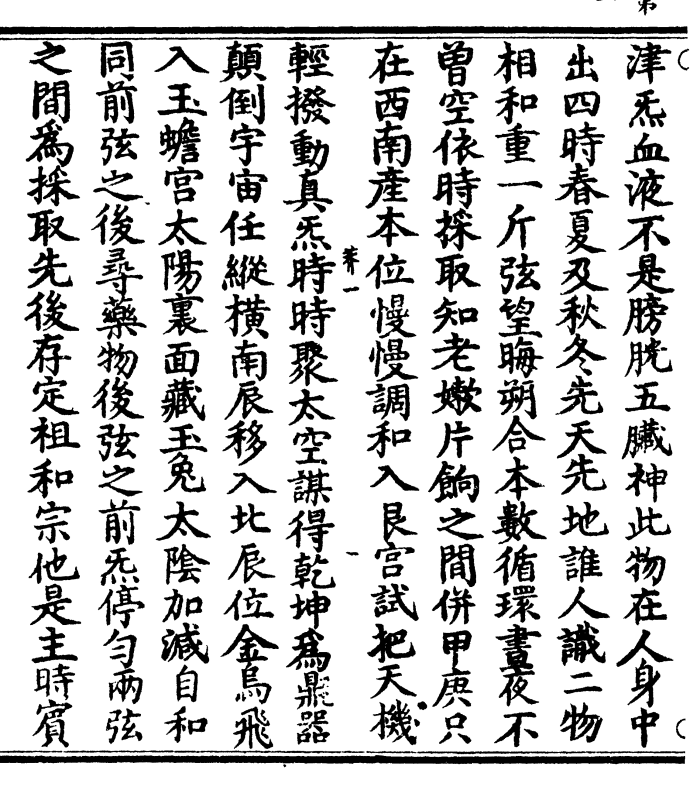 第
津炁血液不是膀胱五臟神此物在人身中
出四時春夏及秋冬先天先地誰人識二物
相和重一斤弦望晦朔合本數循環晝夜不
曾空依時採取知老嫰片餉之間併甲庚只
在西南產本位慢慢調和入艮宮試把天機
輕撥動真炁時時聚太空謀得乾坤為鼎器
顛倒宇宙任縱橫南辰移入北辰位金烏飛
入玉蟾宮太陽裏面藏玉兔太陰加減自和
同前弦之後尋藥物後弦之前炁停勻兩弦
之間為採取先後存定祖和宗他是主時賓